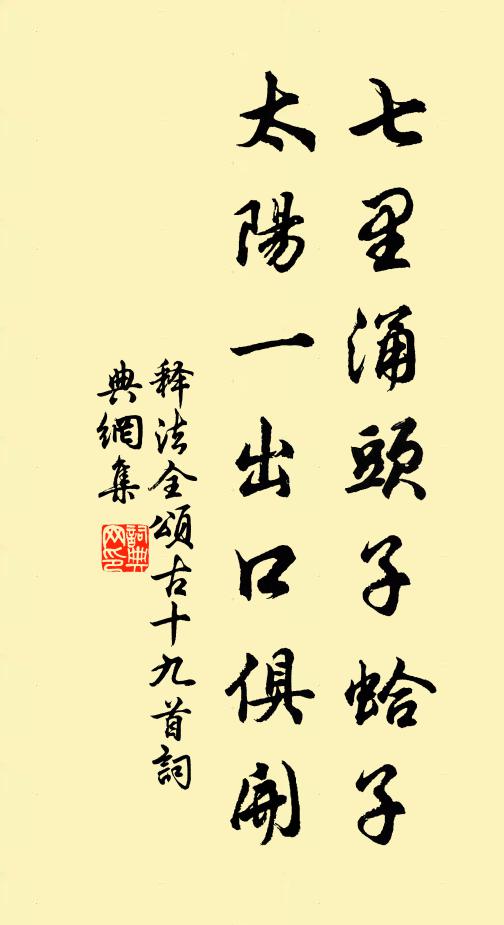 七里涌頭子蛤子
太陽一出口俱開
释法全頌古十九首詞
典網集
詞典
网印